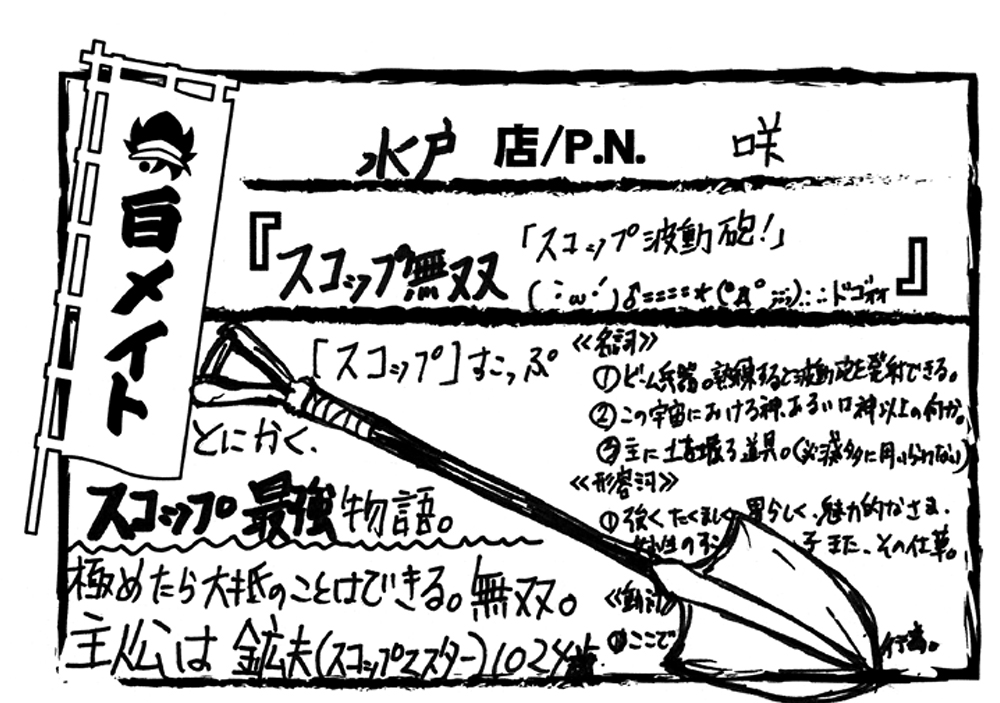 白メイト
水戸 店/P.N. 咲
『スコップ無双
「スコップ波動砲!」
(｀・ω・´)♂====*(゜Д゜;;;).:.:ドゴォォ』
[スコップ]すこっぷ
とにかく、
スコップ最強物語。
極めたら大抵のことはできる。無双。
主人公は鉱夫(スコップマスター)1024歳
≪名詞≫
①ビーム兵器。熟練すると波動砲を発射できる。
②この宇宙における神、あるいは神以上の何か。
③主に土を掘る道具。(滅多に用いられない)
≪形容詞≫
①強くたくましく 男らしく、魅力的なさま、
女性の 子 また、その仕草。
≪動詞≫
①ここで 行為。